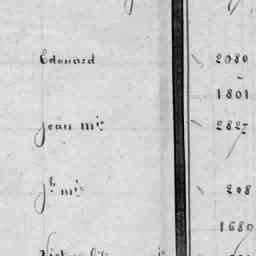 Edouard 2080
1801
Jean m^ie 2827
J^h m^ie 208
1680